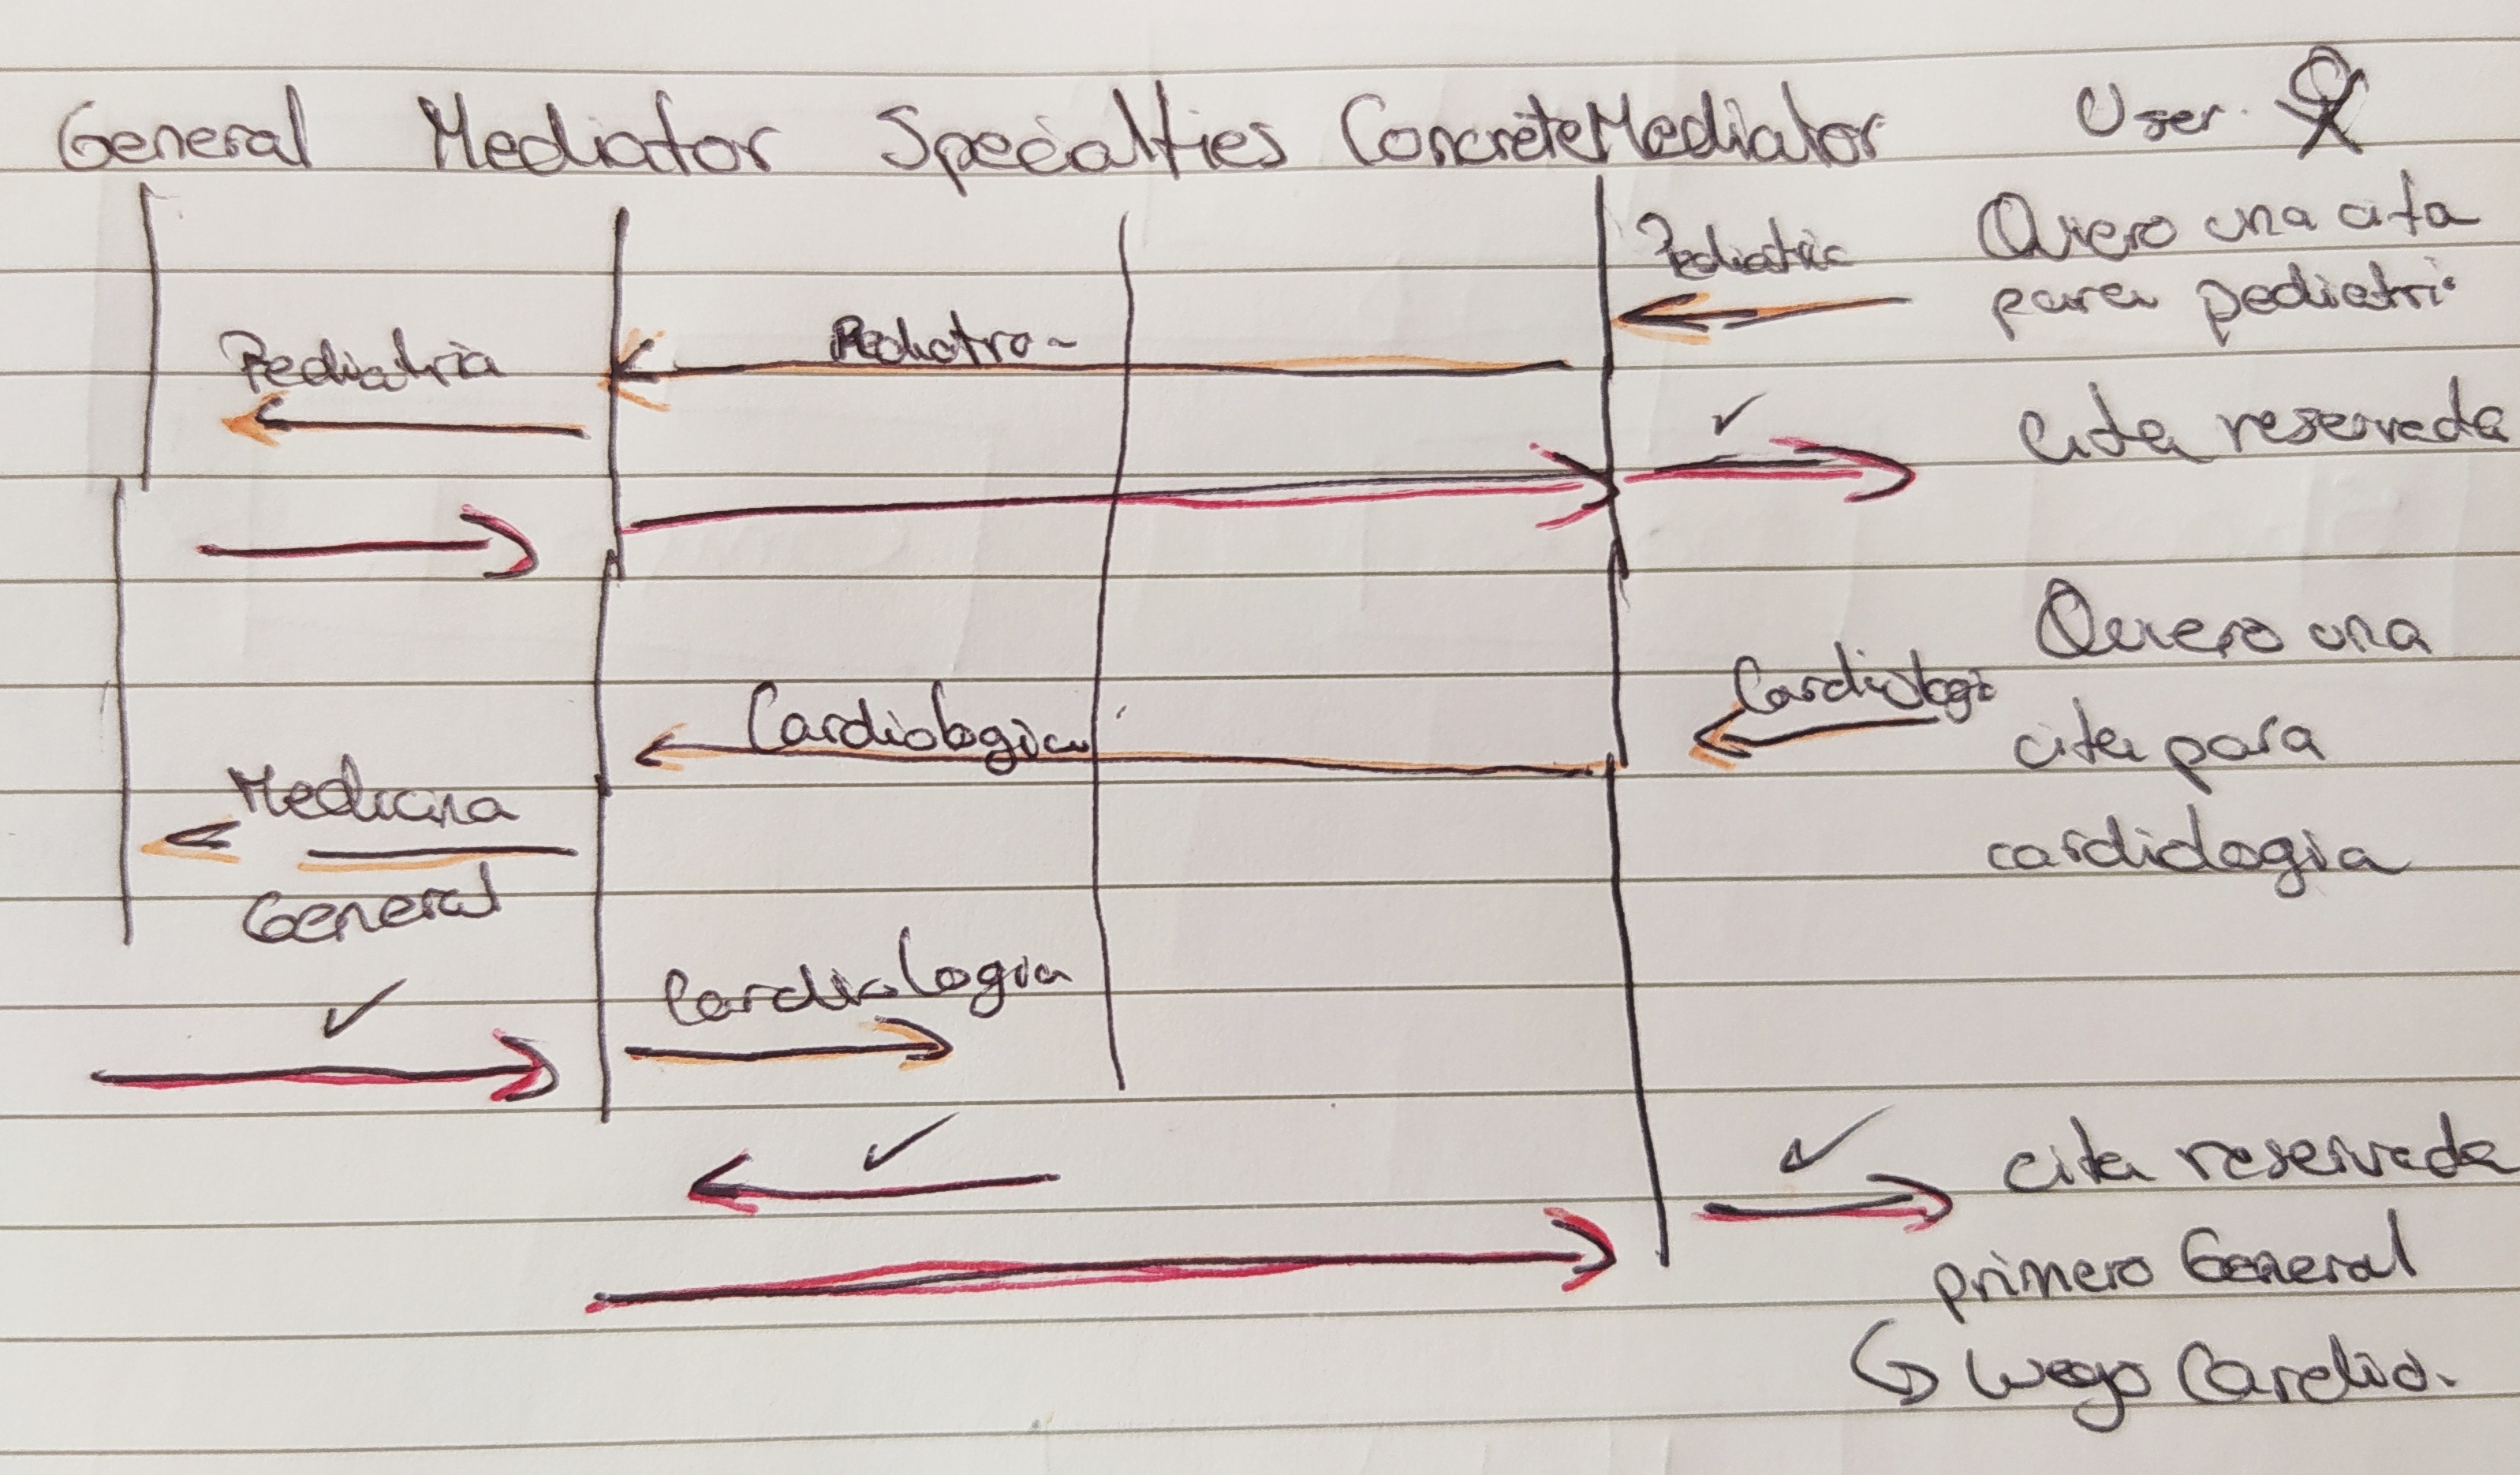 General Mediator Specialties ConcreteMediator User
Pediatria Quiero una cita
para pediatri
Pediatria
cita reservada
Quiero una
Cardiologi
Cardiologia cita para
Medicina
cardiologia
General
Cardiologia
cita reservada
primero General
luego Cardio.